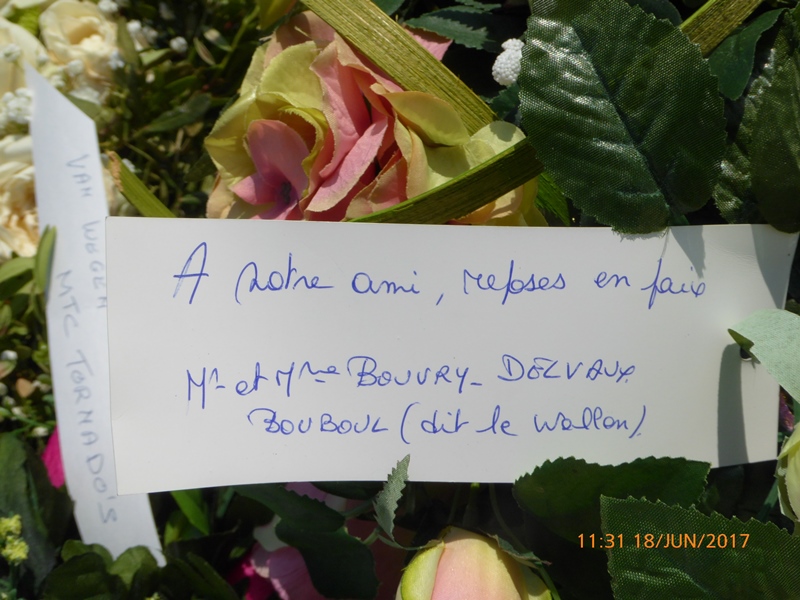 A notre ami, reposes en paix
Mr et Mme BOUVRY-DELVAUX
BOUBOUL (dit le Wallon)
VAN WEGEN
MTC TORNADO'S
11:31 18/JUN/2017